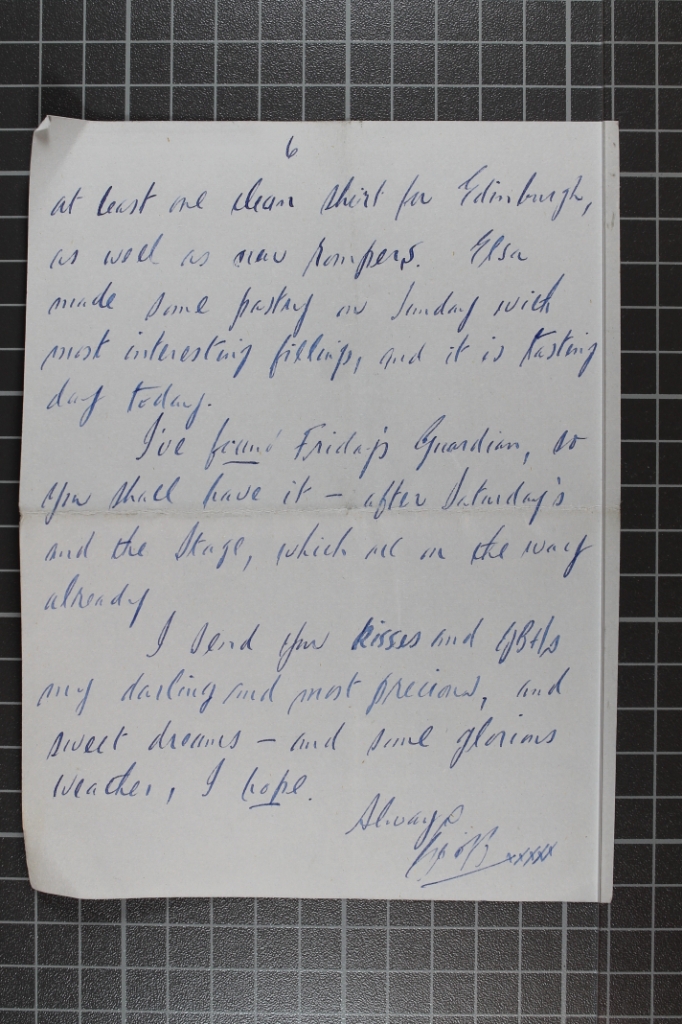 6
at least one clean shirt for Edinburgh,
as well as new rompers. Elsa
made some pastry on Sunday with
most interesting fillings, and it is tasting
day today.
I've found Friday's Guardian, so
you shall have it – after Saturday's
and the Stage, which are on the way
already
I send you kisses and GBHs
my darling and most precious, and
sweet dreams – and some glorious
weather, I hope.
Always
xxxxx